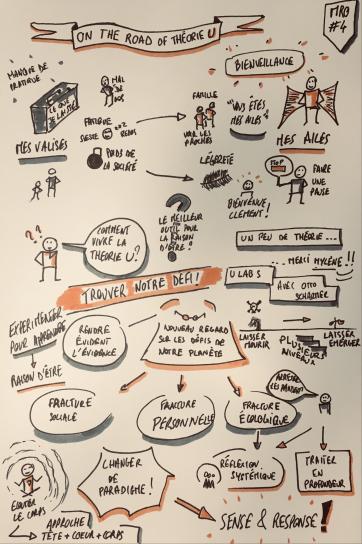 ON THE ROAD OF THÉORIE U
MRO
#4
MANQUE DE
PRATIQUE
CE QUE
JE LAISSE
MES VALISES
MAL
DE
DOS
FATIGUE
SIESTE
REPOS
POIDS DE
LA SOCIÉTÉ
FAMILLE
VOIR LES
PROCHES
LÉGÈRETÉ
BIENVEILLANCE
"VOUS ÊTES
MES AILES"
MES AILES
BIENVENUE
CLEMENT!
STOP
FAIRE
UNE
PAUSE
? ?
COMMENT
VIVRE LA
THÉORIE U?
LE MEILLEUR
OUTIL POUR
LA RAISON
D'ÊTRE?
UN PEU DE THÉORIE...
... MERCI MYLÈNE!!
U LAB S
AVEC OTTO
SCHARMER
TROUVER NOTRE DÉFI!
EXPÉRIMENTER
POUR APPRENDRE
RAISON D'ÊTRE
RENDRE
ÉVIDENT
L'ÉVIDENCE
NOUVEAU REGARD
SUR LES DÉFIS DE
NOTRE PLANÈTE
LAISSER
MOURIR
PLUSIEURS
NIVEAUX
LAISSER
ÉMERGER
FRACTURE
SOCIALE
FRACTURE
PERSONNELLE
FRACTURE
ÉCOLOGIQUE
ÉCOUTER
LE CORPS
APPROCHE
TÊTE + COEUR + CORPS
CHANGER
DE
PARADIGME!
RÉFLEXION
SYSTÉMIQUE
TRAITER
EN
PROFONDEUR
SENSE & RESPONSE!